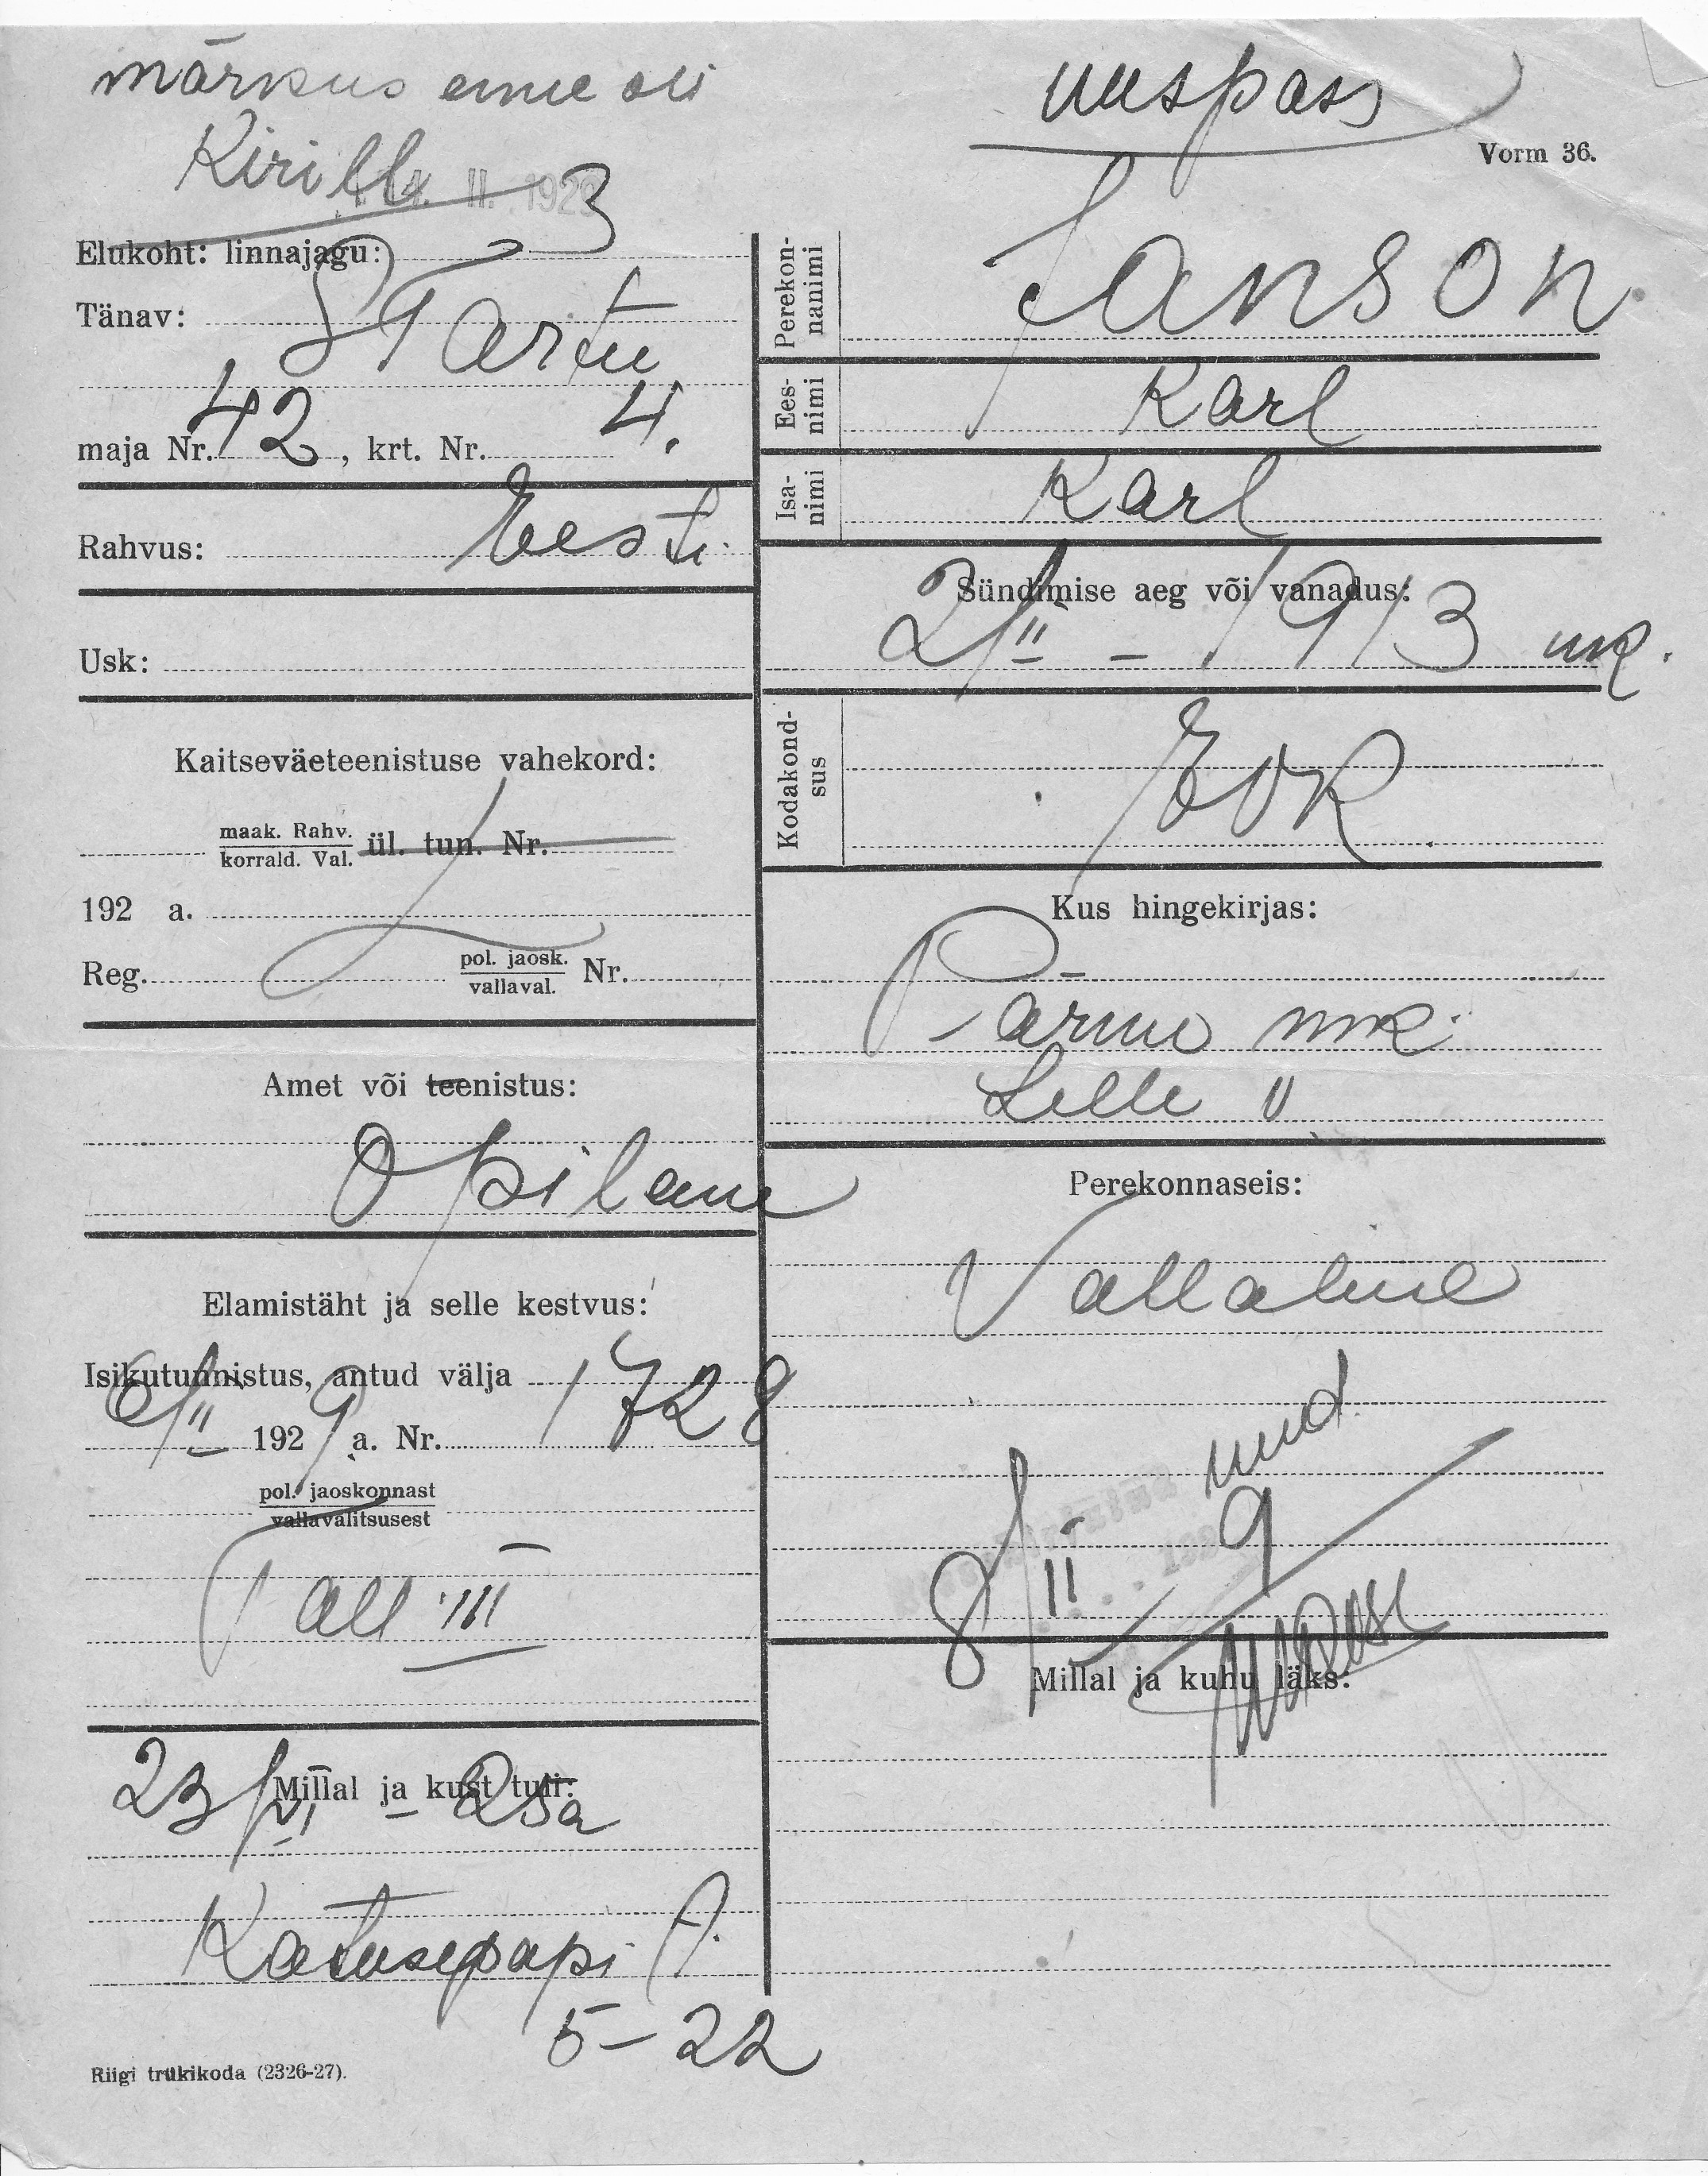 märkus enne oli
Kirill
14. II. 1929
uuspass
Vorm 36.
Elukoht: linnajagu: 3
Tänav: S Tartu
maja Nr. 42, krt. Nr. 4.
Rahvus: Eesti
Usk:
Kaitseväeteenistuse vahekord:
maak. Rahv.
korrald. Val. ül. tun. Nr.
192 a.
Reg. pol. jaosk.
vallaval. Nr.
Amet või teenistus:
Opilane
Elamistäht ja selle kestvus:
Isikutunnistus, antud välja
6/II 1929 a. Nr. 1728
pol. jaoskonnast
vallavalitsusest
Tall III
Millal ja kust tuli:
23/VI - 28a
Katusepapi
5-22
Riigi trükikoda (2326-27).
Perekon-
nanimi
Janson
Ees-
nimi
Karl
Isa-
nimi
Karl
Sündimise aeg või vanadus:
2/II - 1913
Kodakond-
sus
EVK
Kus hingekirjas:
Pärnu mk.
Lelle v
Perekonnaseis:
Vallaline
uued
8/II 9
Millal ja kuhu läks: